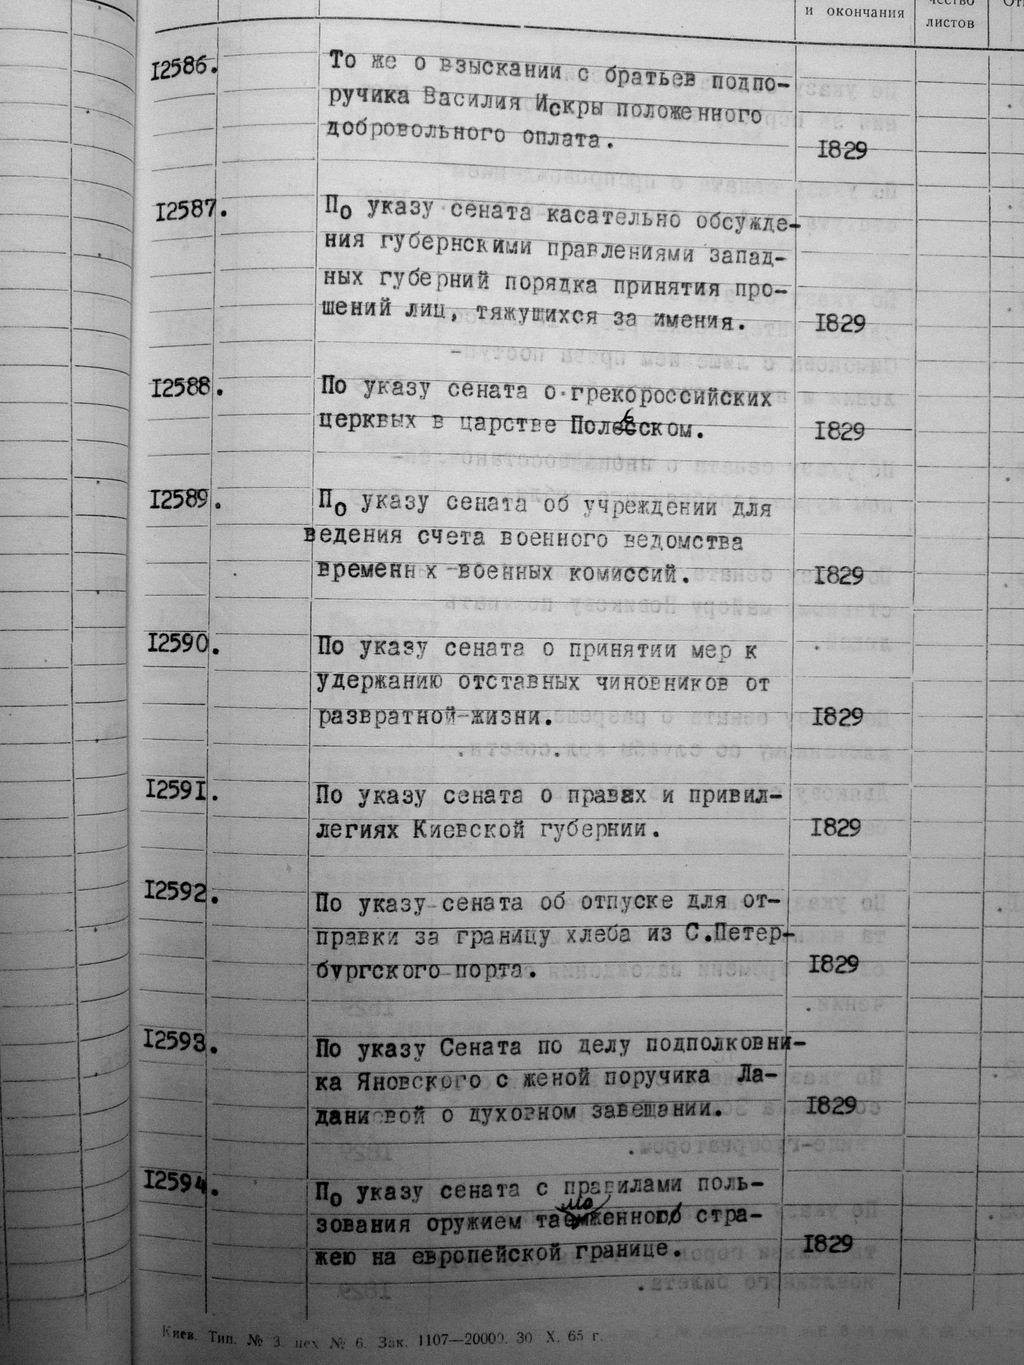 и окончания
чество
листов
12586. То же о взыскании с братьев подпо-
ручика Василия Искры положенного
добровольного оплата. 1829
12587. По указу сената касательно обсужде-
ния губернскими правлениями запад-
ных губерний порядка принятия про-
шений лиц, тяжущихся за имения. 1829
12588. По указу сената о грекороссийских
церквых в царстве Польском. 1829
12589. По указу сената об учреждении для
ведения счета военного ведомства
временн х военных комиссий. 1829
12590. По указу сената о принятии мер к
удержанию отставных чиновников от
развратной жизни. 1829
12591. По указу сената о правах и привил-
легиях Киевской губернии. 1829
12592. По указу сената об отпуске для от-
правки за границу хлеба из С.Петер-
бургского порта. 1829
12593. По указу Сената по делу подполковни-
ка Яновского с женой поручика Ла-
дани вой о духовном завещании. 1829
12594. По указу сената с правилами поль-
зования оружием таможенной стра-
жею на европейской границе. 1829
Киев. Тип. № 3. цех № 6. Зак. 1107—20000. 30 X. 65 г.